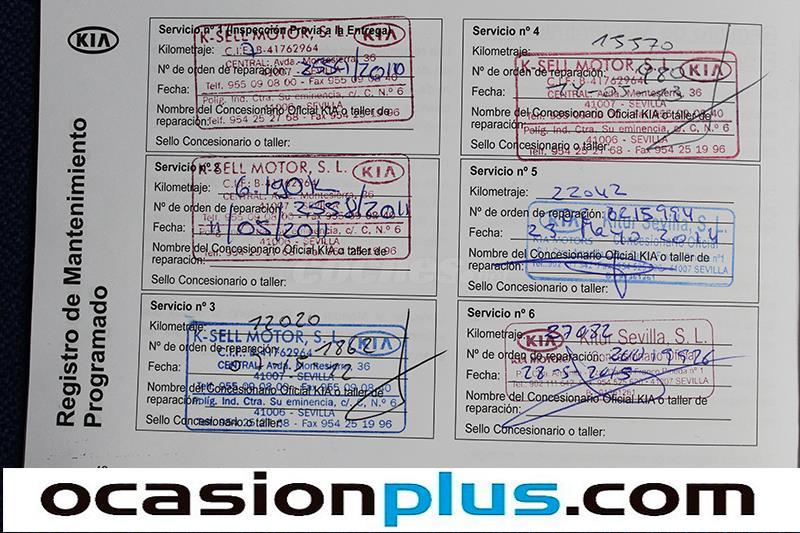 KIA
Registro de Mantenimiento
Programado
Servicio nº 1 (Inspección Previa a la Entrega)
K-SELL MOTOR, S. L. KIA
Kilometraje: 7
C.I.F. B-41762964
CENTRAL: Avda. Montesierra, 36
Nº de orden de reparación: /2010
41007 - SEVILLA
Fecha:
Telf. 955 09 08 00 - Fax 955 09 08 40
Políg. Ind. Ctra. Su eminencia, c/. C, N.º 6
41006 - SEVILLA
Nombre del Concesionario Oficial KIA o taller de
reparación:
Telf. 954 25 27 68 - Fax 954 25 19 96
Sello Concesionario o taller:
Servicio nº 2
K-SELL MOTOR, S. L. KIA
C.I.F. B-41762964
Kilometraje: 6.190 K
CENTRAL: Avda. Montesierra, 36
Nº de orden de reparación: 3558/2011
Fecha: 11/05/2011
41006 - SEVILLA
Nombre del Concesionario Oficial KIA o taller de
reparación:
Sello Concesionario o taller:
Servicio nº 3
Kilometraje: 12020
K-SELL MOTOR, S. L. KIA
Nº de orden de reparación: 1862
C.I.F. B-41762964
CENTRAL: Avda. Montesierra, 36
41007 - SEVILLA
Fecha:
Telf. 955 09 08 00 - Fax 955 09 08 40
Nombre del Concesionario Oficial KIA o taller de
Políg. Ind. Ctra. Su eminencia, c/. C, N.º 6
reparación:
41006 - SEVILLA
Sello Concesionario o taller:
Telf. 954 25 27 68 - Fax 954 25 19 96
Servicio nº 4
Kilometraje: 15570
K-SELL MOTOR, S. L. KIA
C.I.F. B-41762964
Nº de orden de reparación: 980
Fecha:
CENTRAL: Avda. Montesierra, 36
41007 - SEVILLA
Nombre del Concesionario Oficial KIA o taller de
reparación:
Políg. Ind. Ctra. Su eminencia, c/. C, N.º 6
41006 - SEVILLA
Telf. 954 25 27 68 - Fax 954 25 19 96
Sello Concesionario o taller:
Servicio nº 5
Kilometraje: 22042
Nº de orden de reparación: 0215984
KIA Kitur Sevilla, S.L.
Fecha: 23 Mayo 2014
KIA MOTORS Concesionario Oficial
Nombre del Concesionario Oficial KIA o taller de
reparación:
41007 SEVILLA
Sello Concesionario o taller:
Servicio nº 6
Kilometraje: 37082
KIA Kitur Sevilla, S. L.
Nº de orden de reparación:
Fecha: 28-5-2015
Nombre del Concesionario Oficial KIA o taller de
reparación:
Sello Concesionario o taller:
ocasionplus.com